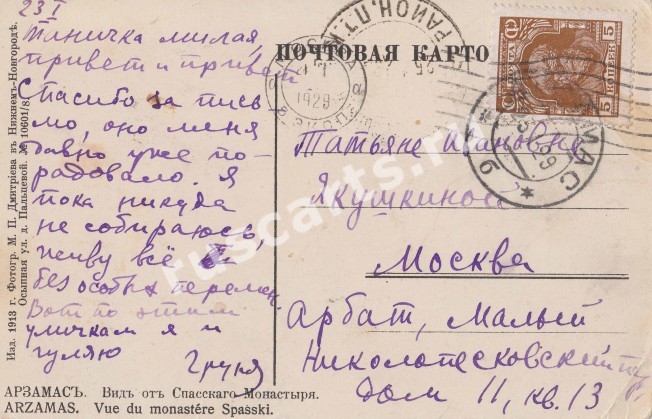 23 I
Таничка милая,
привет и привет
Спасибо за пись
мо, оно меня
давно уже по-
радовало. Я
пока никуда
не собираюсь,
живу всё
без особых перемен.
Вот по этим
уличкам я и
гуляю
Груня
ПОЧТОВАЯ КАРТО
Татьяне Ивановне
Якушкиной
Москва
Арбат, Малый
Николопесковский
дом 11, кв. 13
Изд. 1913 г. Фотогр. М. П. Дмитріева въ Нижнемъ-Новгородѣ.
Осыпная ул. д. Пальцевой. № 10601/8
АРЗАМАСЪ. Видъ отъ Спасскаго Монастыря.
ARZAMAS. Vue du monastére Spasski.
РАЙОН.
1929
МАС
б
5 КОПЕЕК 5
ruscarts.ru